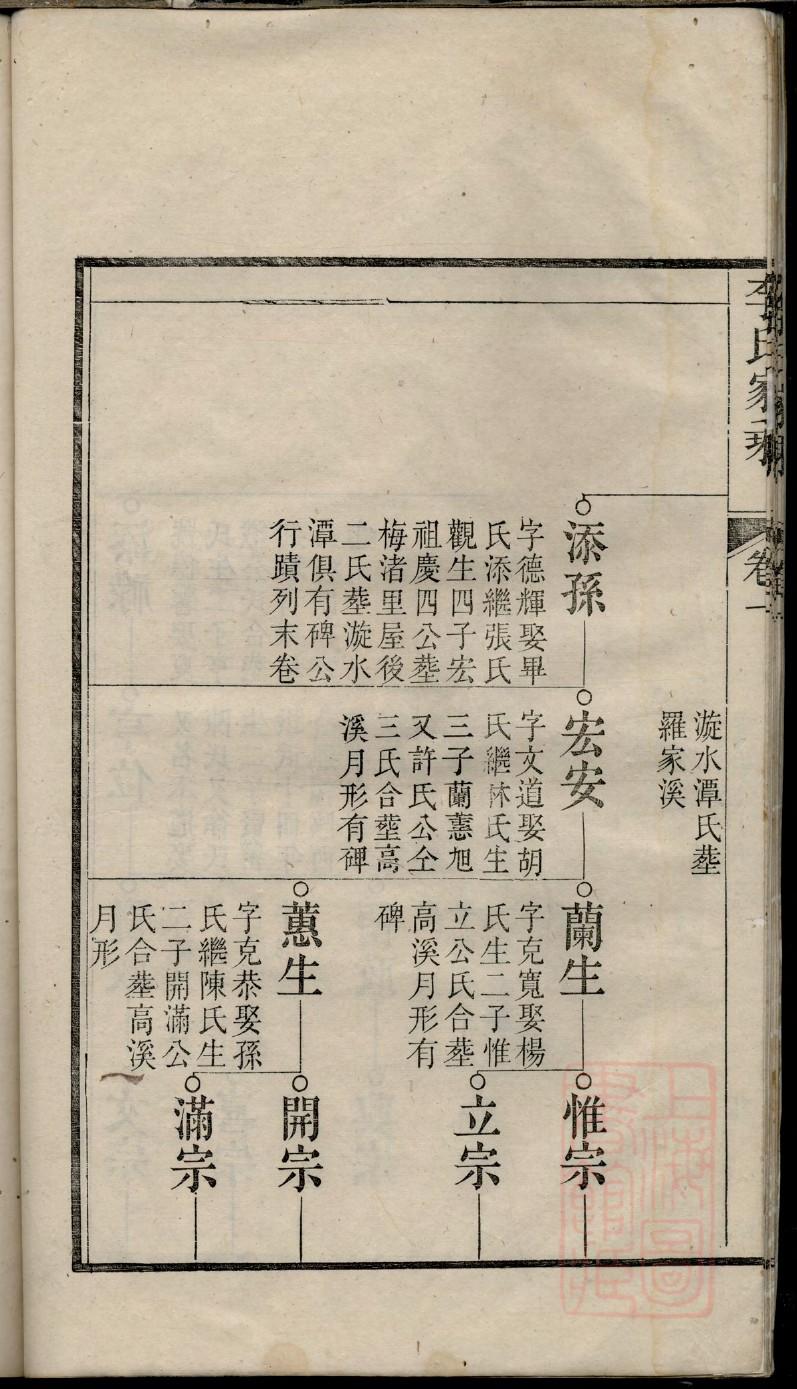 李氏家乘
卷一
漩水潭氏塟
羅家溪
添孫
字德輝娶畢
氏添繼張氏
觀生四子宏
祖慶四公塟
梅渚里屋後
二氏塟漩水
潭俱有碑公
行蹟列末卷
宏安
字文道娶胡
氏繼林氏生
三子蘭蕙旭
又許氏公仝
三氏合塟高
溪月形有碑
蘭生
字克寬娶楊
氏生二子惟
立公氏合塟
高溪月形有
碑
蕙生
字克恭娶孫
氏繼陳氏生
二子開滿公
氏合塟高溪
月形
惟宗
立宗
開宗
滿宗